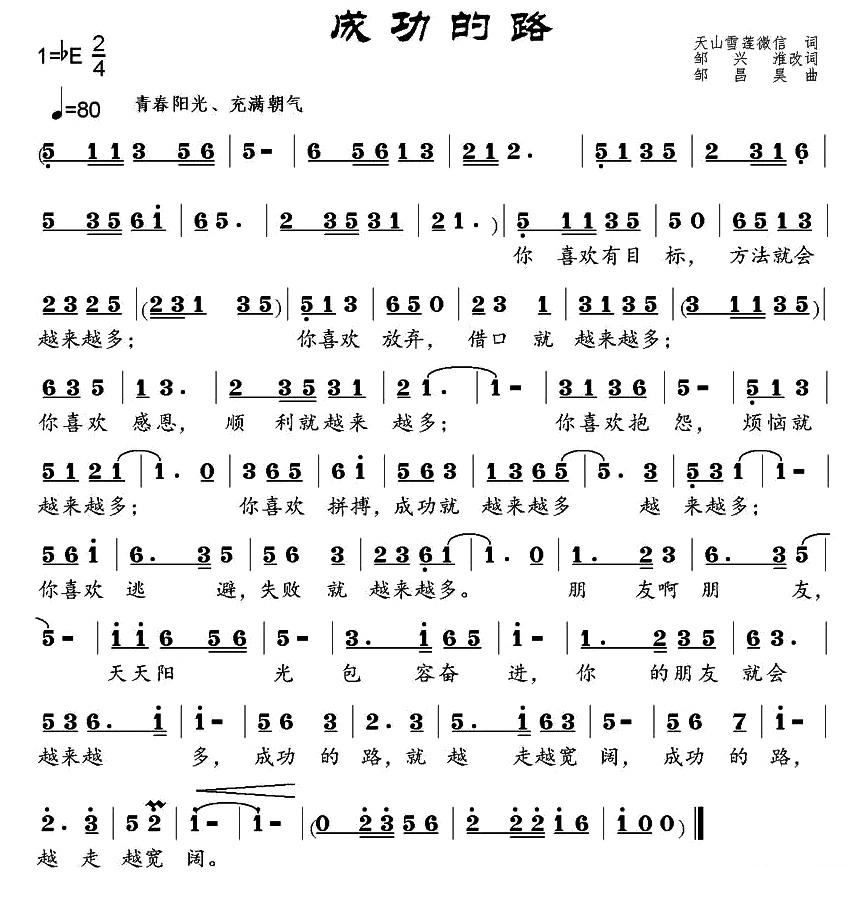 成功的路
1=♭E 2/4
天山雪莲微信 词
邹兴淮改词
邹昌昊 曲
♩=80 青春阳光、充满朝气
(5 1 1 3 5 6 | 5 - | 6 5 6 1 3 | 2 1 2 . | 5 1 3 5 | 2 3 1 6 |
5 3 5 6 i | 6 5 . | 2 3 5 3 1 | 2 1 . ) | 5 1 1 3 5 | 5 0 | 6 5 1 3 |
你 喜欢有目 标， 方法就会
2 3 2 5 | (2 3 1 3 5) | 5 1 3 | 6 5 0 | 2 3 1 | 3 1 3 5 | (3 1 1 3 5) |
越来越多； 你喜欢 放弃， 借口 就 越来越多；
6 3 5 | 1 3 . | 2 3 5 3 1 | 2 1 . | 1 - | 3 1 3 6 | 5 - | 5 1 3 |
你喜欢 感恩， 顺 利就越来 越多； 你喜欢抱 怨， 烦恼就
5 1 2 1 | 1 . 0 | 3 6 5 | 6 i | 5 6 3 | 1 3 6 5 | 5 . 3 | 5 3 i | i - |
越来越多； 你喜欢 拼搏，成功就 越来越多 越 来越多；
5 6 i | 6 . 3 5 | 5 6 3 | 2 3 6 1 | 1 . 0 | 1 . 2 3 | 6 . 3 5 |
你喜欢 逃 避，失败 就 越来越多。 朋 友啊 朋 友，
5 - | i i 6 5 6 | 5 - | 3 . i 6 5 | i - | 1 . 2 3 5 | 6 3 . |
天天阳 光 包 容奋 进， 你 的朋友 就会
5 3 6 . i | i - | 5 6 3 | 2 . 3 | 5 . i 6 3 | 5 - | 5 6 7 | i - |
越来越 多， 成功 的 路，就 越 走越宽 阔， 成功 的 路，
2 . 3 | 5 2 | i - | i - | (0 2 3 5 6 | 2 2 2 i 6 | i 0 0) ‖
越 走 越宽 阔。